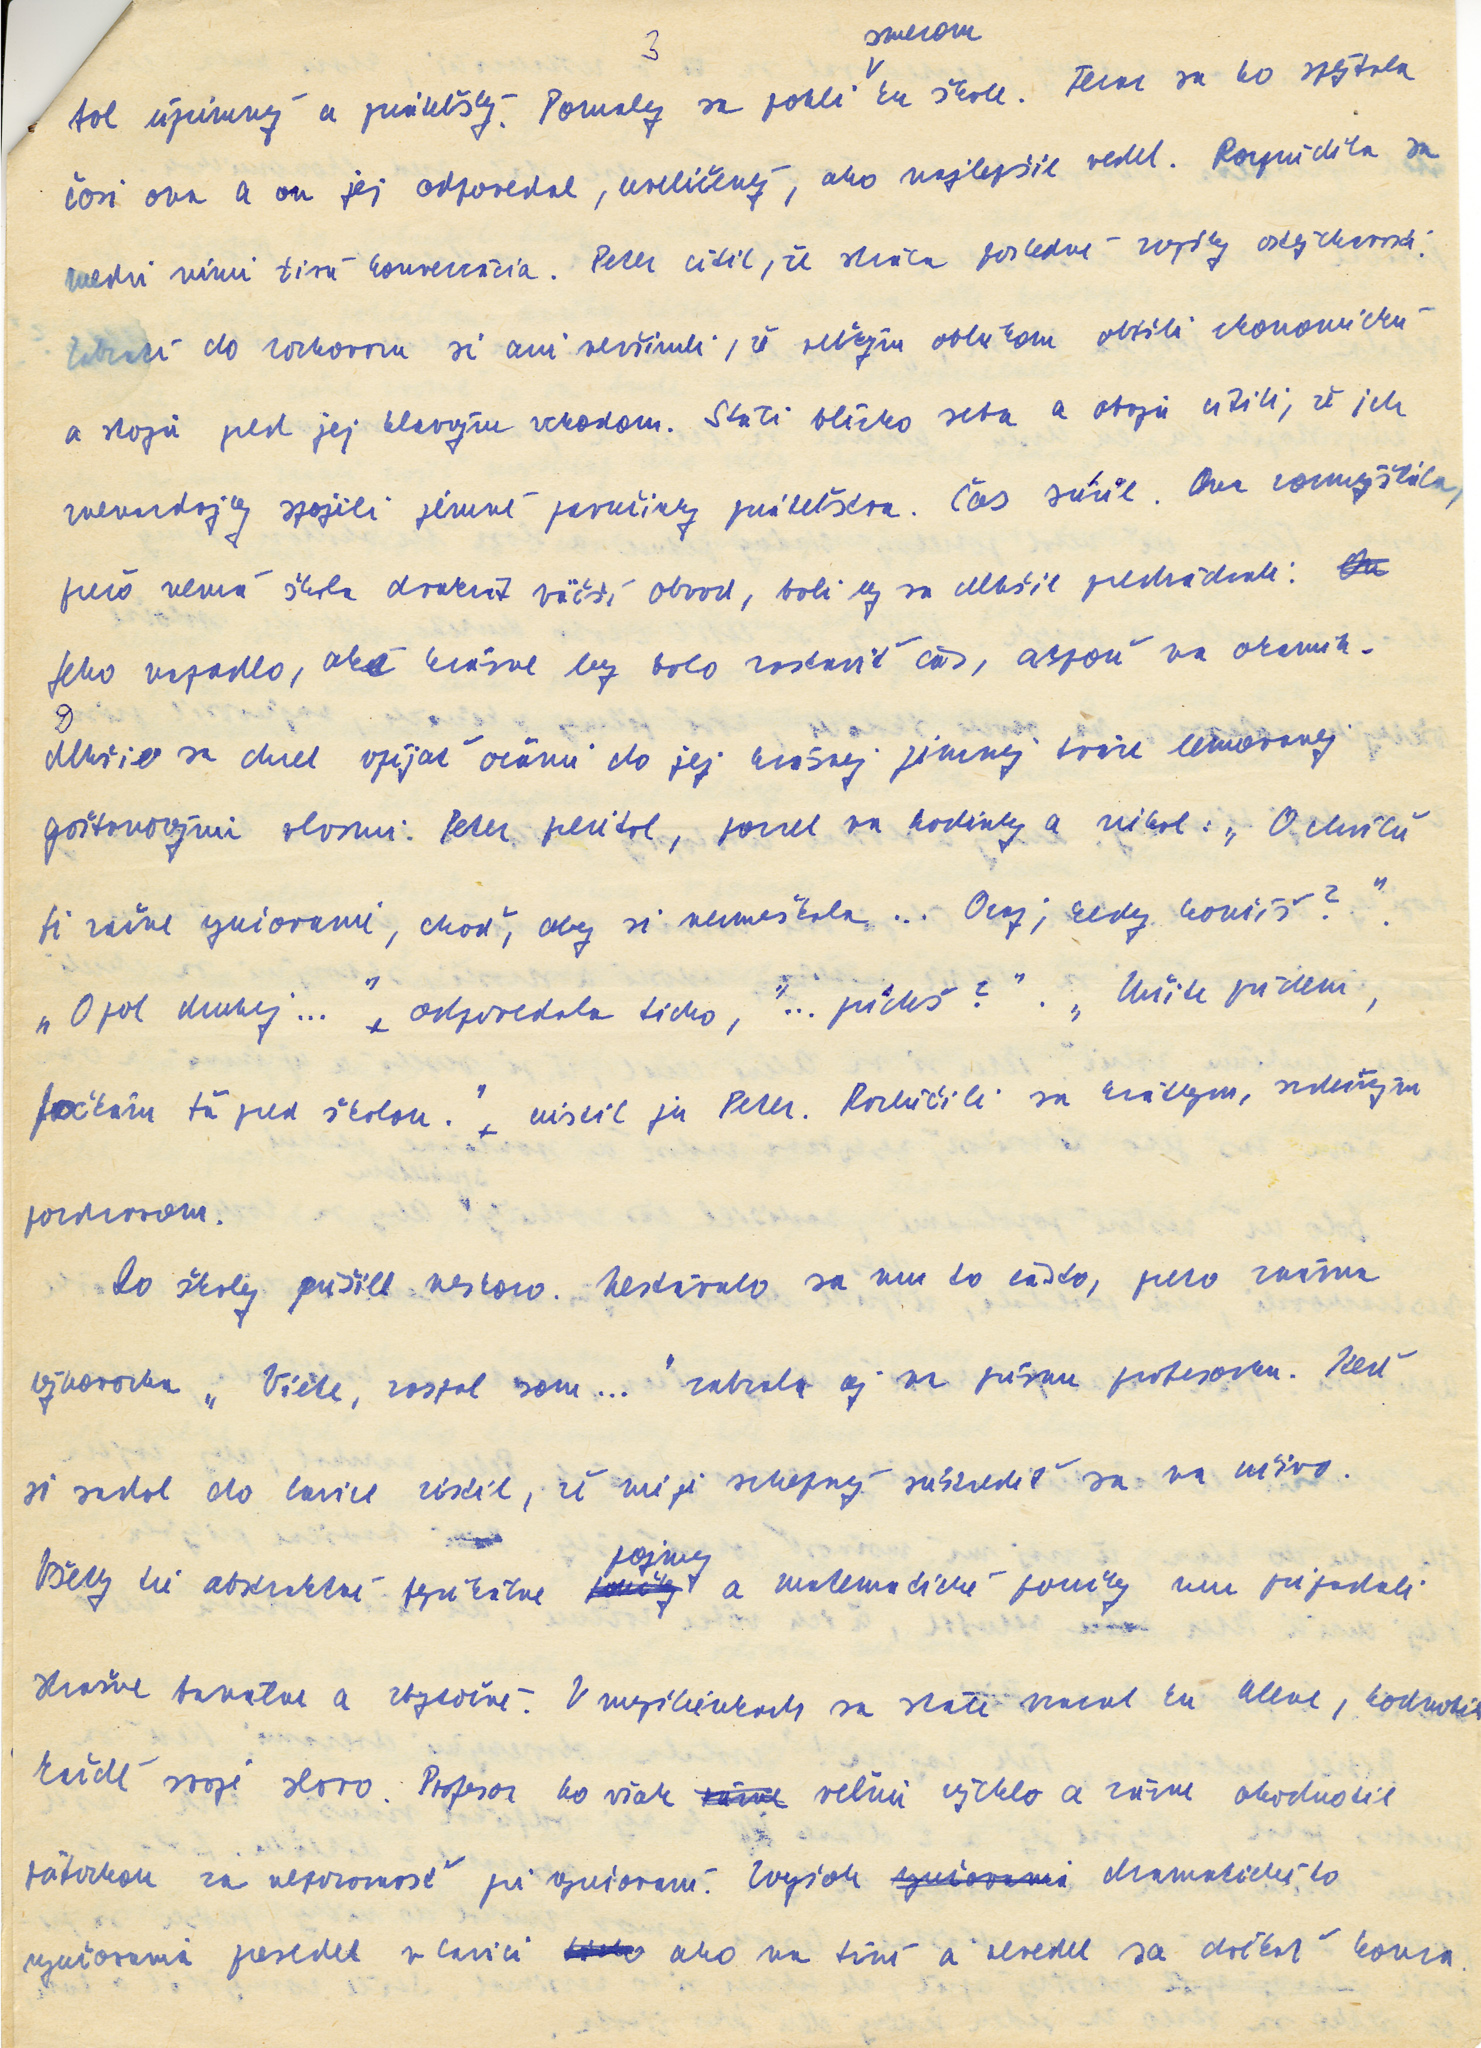 3
smerom
bol úprimný a priateľský. Pomaly sa pohli ku škole. Teraz sa ho spýtala
čosi ona a on jej odpovedal, uveličený, ako najlepšie vedel. Rozprúdila sa
medzi nimi tichá konverzácia. Peter cítil, že stráca posledné zvyšky ostýchavosti.
Zabratí do rozhovoru si ani nevšimli, že veľkým oblúkom obišli ekonomickú
a stoja pred jej hlavným vchodom. Stáli blízko seba a obaja cítili, že ich
menovdojky spojili jemné pavučinky priateľstva. Čas súril. Ona rozmýšľala,
prečo nemá škola dvakrát väčší obvod, boli by sa dlhšie prechádzali. On
Jeho napadlo, aké krásne by bolo zastaviť čas, aspoň na okamih.
Dlhšie sa chcel vpíjať očami do jej krásnej jemnej tváre lemovanej
gaštanovými vlasmi. Peter precitol, pozrel na hodinky a riekol: „ O chvíľu
ti začne vyučovanie, choď, aby si nemeškala ... Ozaj, kedy končíš? ".
„ O pol druhej ... ", odpovedala ticho, "... prídeš? ". „ Určite prídem,
počkám ťa pred školou. ", uistil ju Peter. Rozlúčili sa krátkym, srdečným
pozdravom.
Do školy prišiel neskoro. Nestávalo sa mu to často, preto známa
výhovorka „ Viete, zaspal som ... " zabrala aj na prísnu profesorku. Keď
si sadol do lavice zistil, že nie je schopný sústrediť sa na učivo.
pojmy
Všetky tie abstraktné fyzikálne poučky a matematické poučky mu pripadali
strašne banálne a zbytočné. V myšlienkach sa stále vracal ku Alene, hodnotil
každé svoje slovo. Profesor ho však rázne veľmi rýchlo a rázne ohodnotil
päťorkou za nepozornosť pri vyučovaní. Zvyšok vyučovania dramatického
vyučovania presedel v lavici ticho ako na tŕní a nevedel sa dočkať konca.